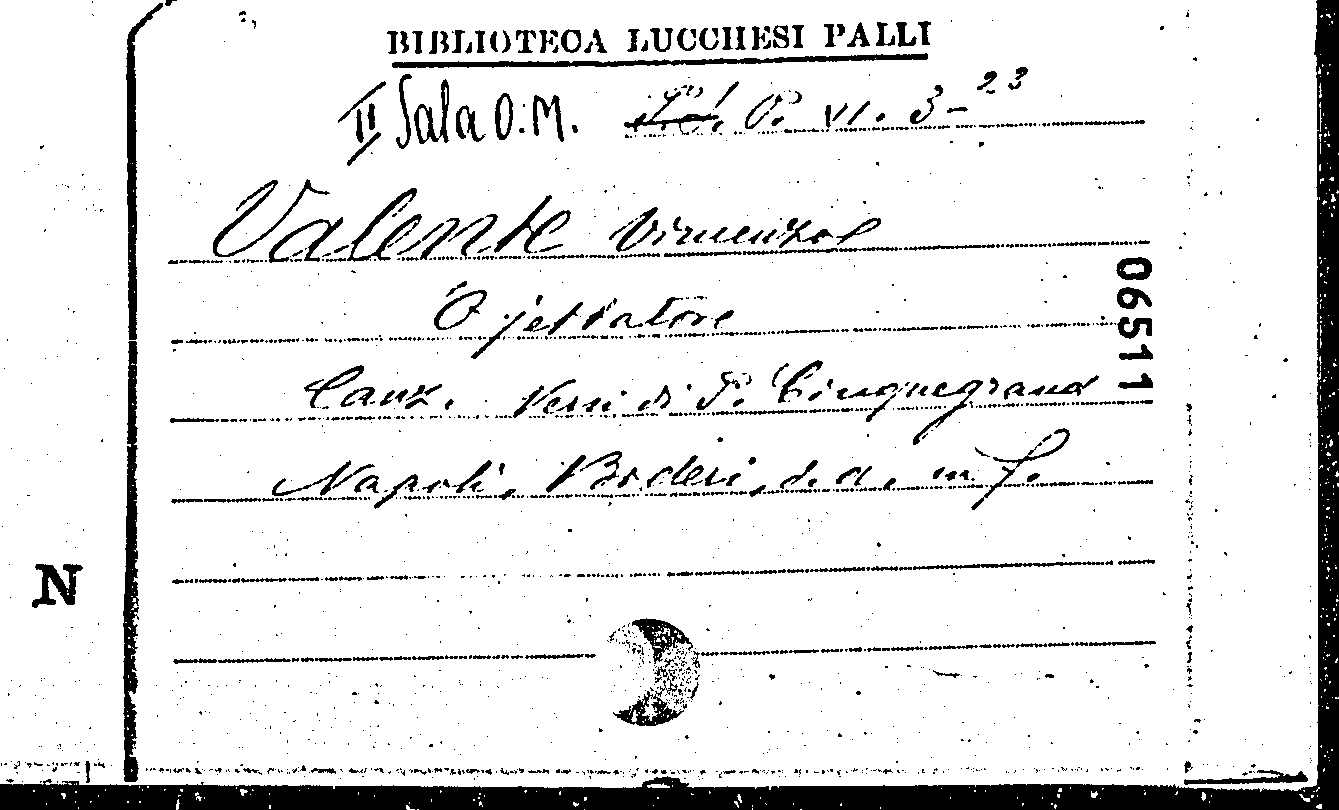 BIBLIOTECA LUCCHESI PALLI
II Sala O.M. P. VI. 3-23
Valente Vincenzo
'O jettatore
Canz. Versi di P. Cinquegrana
Napoli, Bideri, s.d. in f.
06511
N